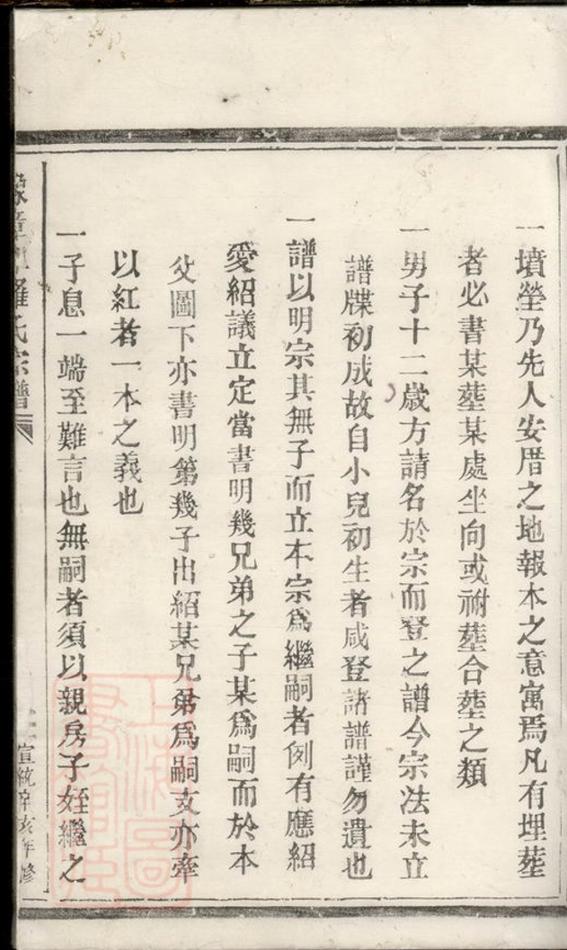 一墳塋乃先人安厝之地報本之意寓焉凡有埋塟
者必書某塟某處坐向或祔塟合塟之類
一男子十二歲方請名於宗而登之譜今宗法未立
譜牒初成故自小兒初生者咸登諸譜謹勿遺也
一譜以明宗其無子而立本宗爲繼嗣者例有應紹
愛紹議立定當書明幾兄弟之子某爲嗣而於本
父圖下亦書明第幾子出紹某兄弟爲嗣支亦牽
以紅者一本之義也
一子息一端至難言也無嗣者須以親房子姪繼之
章羅氏宗譜
宣統辛亥年修
上海圖書館藏